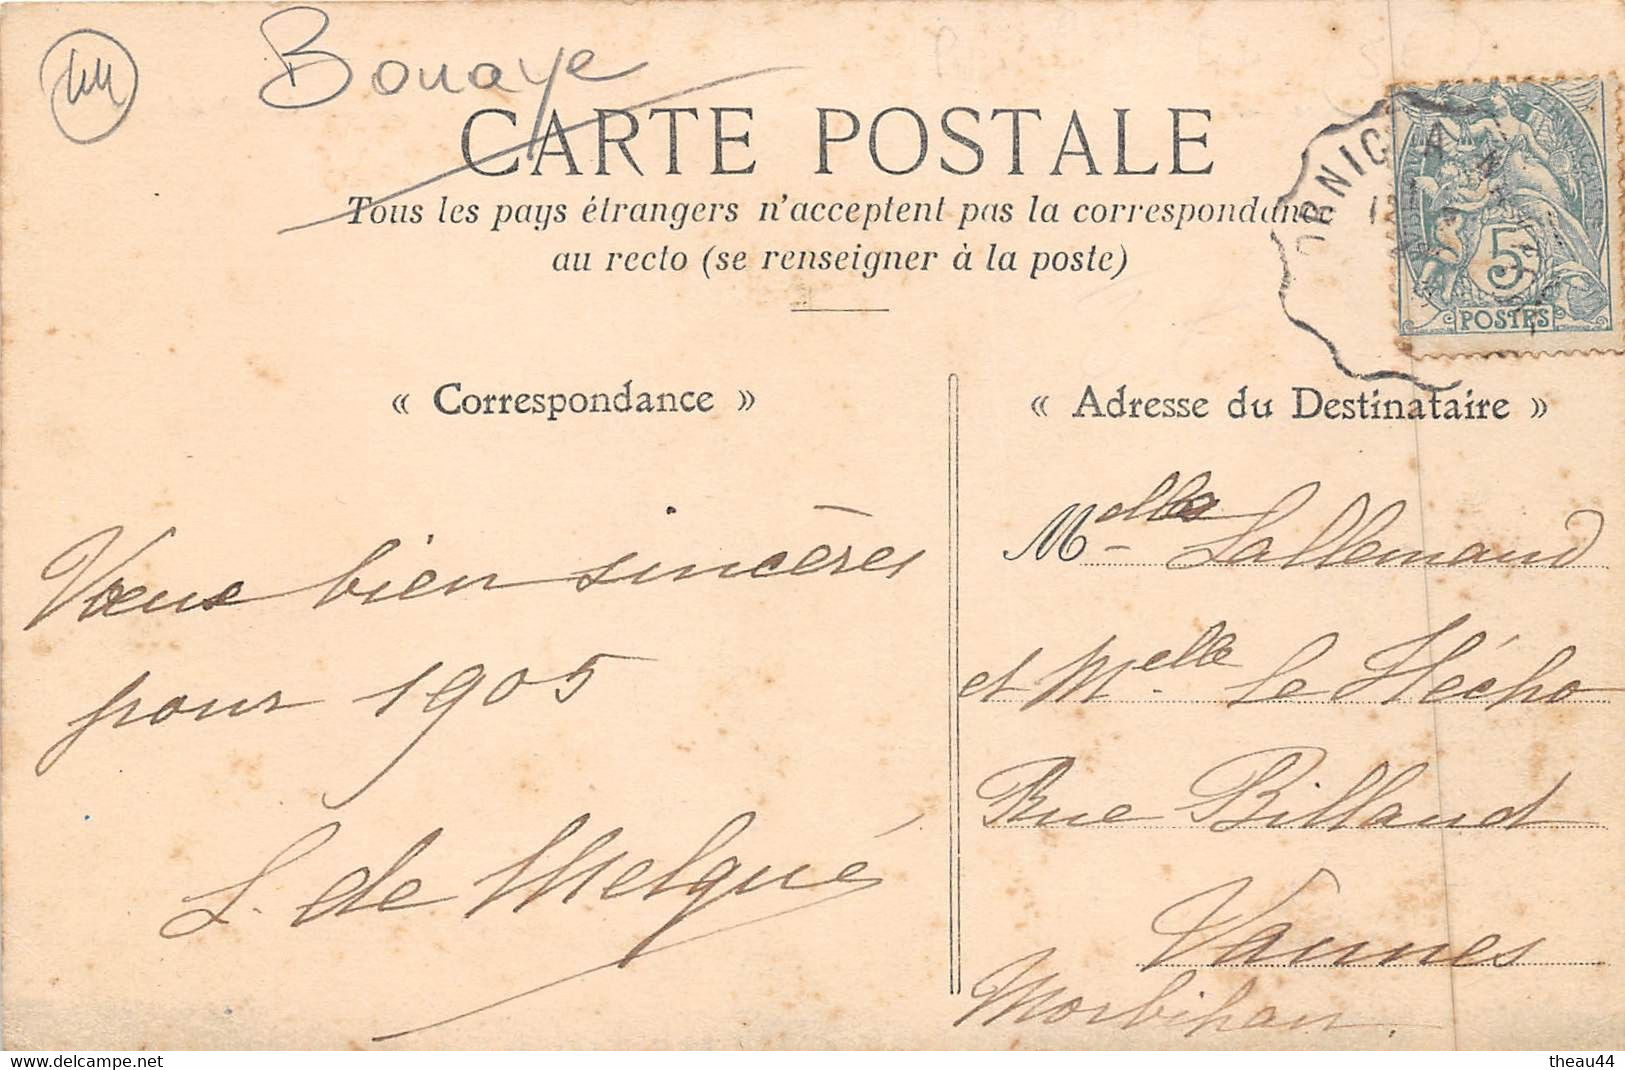 44
Bouaye
CARTE POSTALE
Tous les pays étrangers n'acceptent pas la correspondance
au recto (se renseigner à la poste)
ORNIC A N
5
POSTES
« Correspondance »
Vœux bien sincères
pour 1905
L. de Melgué
« Adresse du Destinataire »
Melles Lallemand
et Melle Le Hécho
Rue Billaud
Vannes
Morbihan.
www.delcampe.net
theau44